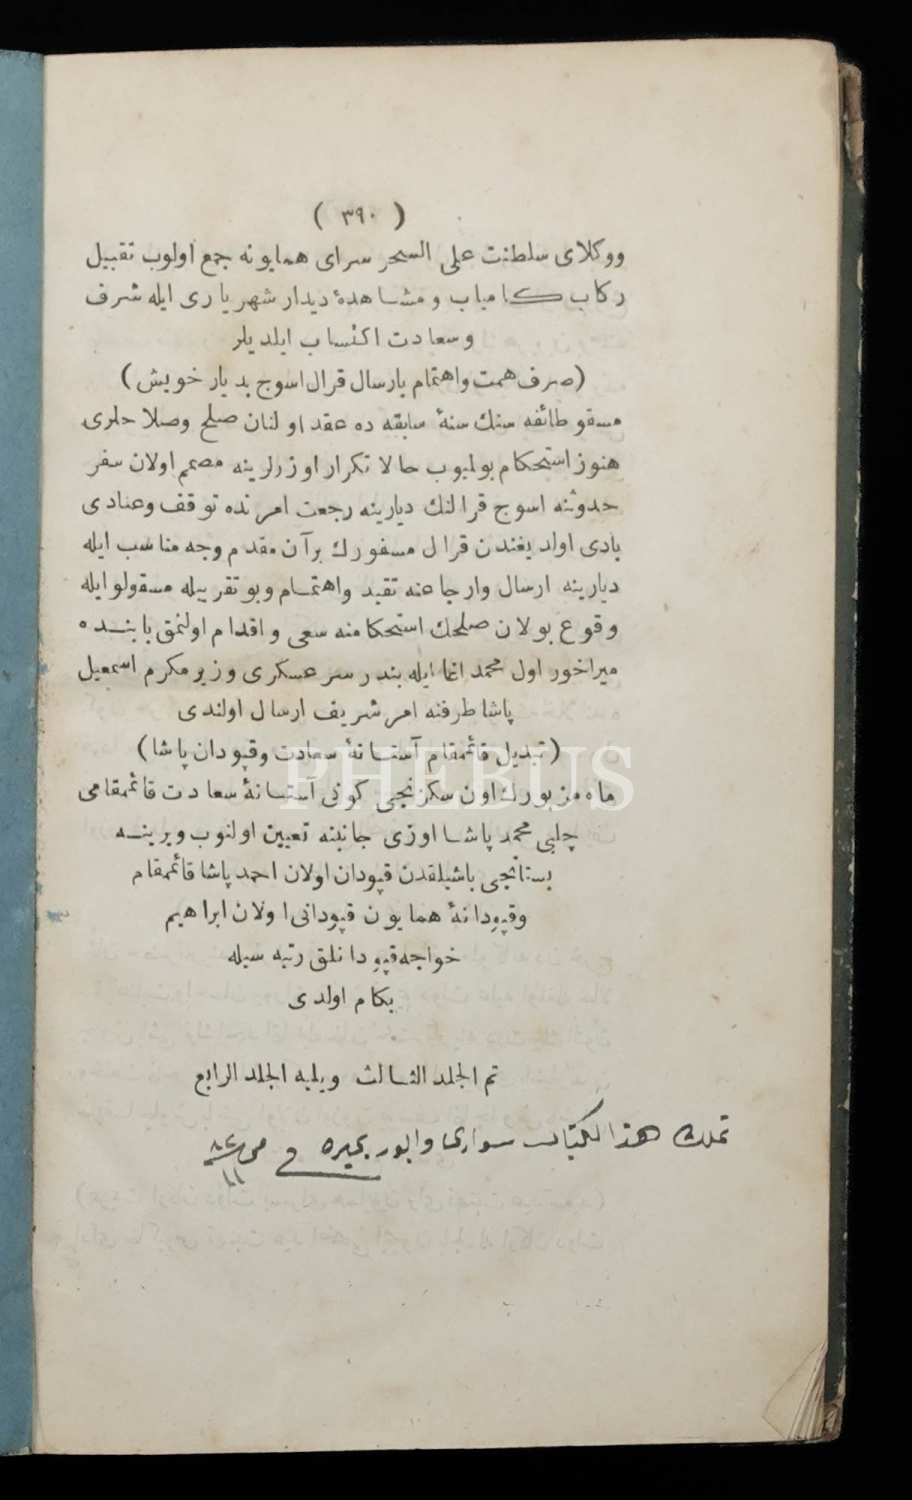 ( ٣٩٠ )
ووكلاى سلطنت على السحر سراى همايونه جمع اولوب تقبيل
ركاب كامياب و مشاهدهٔ ديدار شهريارى ايله شرف
وسعادت اكتساب ايلديلر
(صرف همت واهتمام بارسال قرال اسوج بديار خويش)
مسقو طائفه سنك سنهٔ سابقه ده عقد اولنان صلح وصلاحلرى
هنوز استحكام بولميوب حالا تكرار اوزرلرينه مصمم اولان سفر
حدوثنه اسوج قرالنك ديارينه رجعت امرنده توقف وعنادى
بادى اولديغندن قرال مسفورك برآن مقدم وجه مناسب ايله
ديارينه ارسال وارجاعنه تقيد واهتمام وبو تقريبله مسقولو ايله
وقوع بولان صلحك استحكامنه سعى و اقدام اولنمق بابنده
ميراخور اول محمد اغا ايله بندر سر عسكرى وزير مكرم اسمعيل
پاشا طرفنه امر شريف ارسال اولندى
(تبديل قائمقام آستانهٔ سعادت وقپودان پاشا)
ماه مزبورك اون سكزنجى كونى آستانهٔ سعادت قائمقامى
چلبى محمد پاشا اوزى جانبنه تعيين اولنوب ويرينه
بستانجى باشيلقدن قپودان اولان احمد پاشا قائمقام
وقپودانهٔ همايون قپودانى اولان ابراهيم
خواجه قپودانلق رتبه سيله
بكام اولدى
تم الجلد الثالث ويليه الجلد الرابع
تملك هذا الكتاب سوارى وابور بحيره فى
PHEBUS